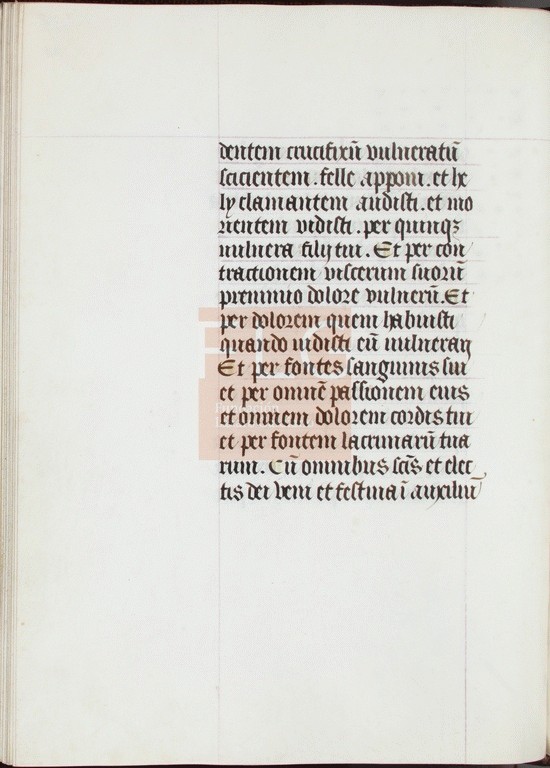 dentem crucifixũ vulneratũ
scicientem. felle apponi. et he
ly clamantem audisti. et mo
rientem vidisti. per quinqꝫ
vulnera filij tui. Et per con
tractionem viscerum suorũ
preminio dolore vulnerũ. Et
per dolorem quem habuisti
quando vidisti eũ vulnerari
Et per fontes sanguinis sui
et per omnẽ passionem eius
et omnem dolorem cordis tui
et per fontem lacrimarũ tua
rum. Cũ omnibus scĩs et elec
tis dei veni et festina ĩ auxiliũ
FLG